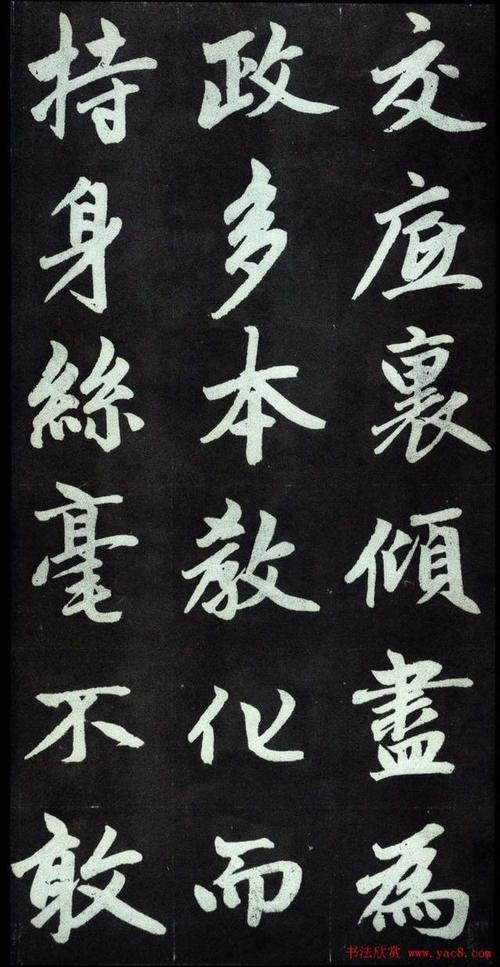 交底裏傾盡為
政多本教化而
持身絲毫不敢
书法欣赏 www.yac8.com